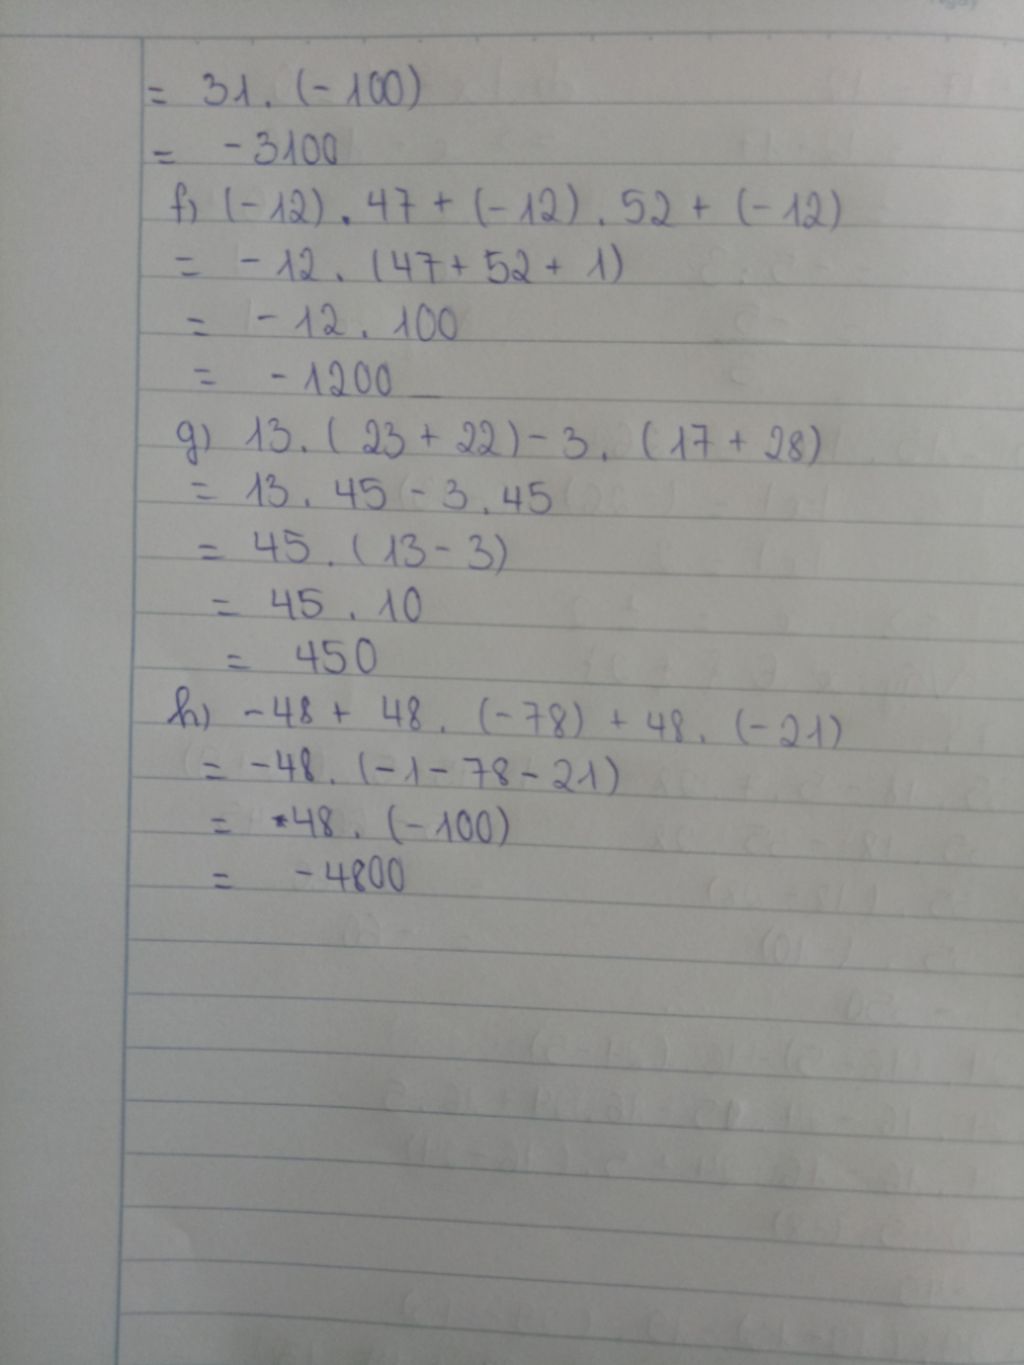 = 31. (-100)
= -3100
f) (-12). 47 + (-12). 52 + (-12)
= -12. (47 + 52 + 1)
= -12. 100
= -1200
g) 13. (23 + 22) - 3. (17 + 28)
= 13. 45 - 3. 45
= 45. (13 - 3)
= 45. 10
= 450
h) -48 + 48. (-78) + 48. (-21)
= -48. (-1 - 78 - 21)
= 48. (-100)
= -4800